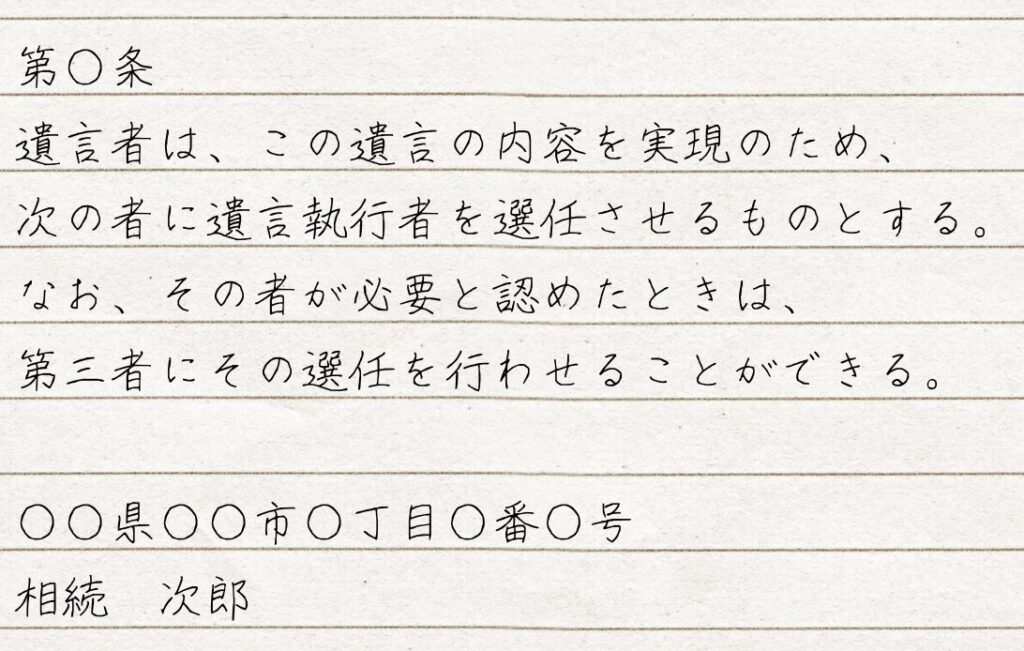 第〇条
遺言者は、この遺言の内容を実現のため、
次の者に遺言執行者を選任させるものとする。
なお、その者が必要と認めたときは、
第三者にその選任を行わせることができる。
〇〇県〇〇市〇丁目〇番〇号
相続　次郎